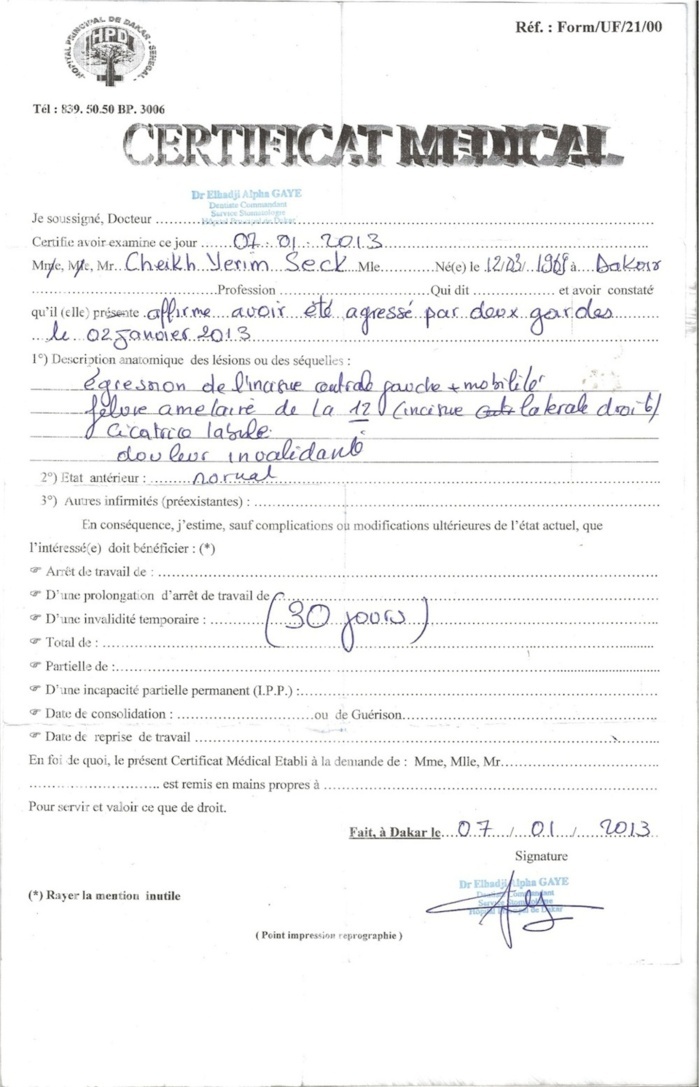 HOPITAL PRINCIPAL DE DAKAR - SENEGAL -
HPD
Réf. : Form/UF/21/00
Tél : 839. 50.50 BP. 3006
CERTIFICAT MEDICAL
Dr Elhadji Alpha GAYE
Dentiste Commandant
Service Stomatologie
Hôpital Principal de Dakar
Je soussigné, Docteur
Certifie avoir examine ce jour 07.01.2013
Mme, Mlle, Mr. Cheikh Yerim Seck Mle Né(e) le 12/03/1969 à Dakar
Profession Qui dit et avoir constaté
qu'il (elle) présente affirme avoir été agressé par deux gardes
le 02 janvier 2013
1°) Description anatomique des lésions ou des séquelles :
égression de l'incisive centrale gauche + mobilité
fêlure amelaire de la 12 (incisive laterale droite)
cicatrice labiale
douleur invalidante
2°) Etat antérieur : normal
3°) Autres infirmités (préexistantes) :
En conséquence, j'estime, sauf complications ou modifications ultérieures de l'état actuel, que
l'intéressé(e) doit bénéficier : (*)
☞ Arrêt de travail de :
☞ D'une prolongation d'arrêt de travail de
☞ D'une invalidité temporaire : (30 jours)
☞ Total de :
☞ Partielle de :
☞ D'une incapacité partielle permanent (I.P.P.) :
☞ Date de consolidation : ou de Guérison
☞ Date de reprise de travail
En foi de quoi, le présent Certificat Médical Etabli à la demande de : Mme, Mlle, Mr.
est remis en mains propres à
Pour servir et valoir ce que de droit.
Fait, à Dakar le 07 / 01 / 2013
Signature
Dr Elhadji Alpha GAYE
Dentiste Commandant
Service Stomatologie
Hôpital Principal de Dakar
(*) Rayer la mention inutile
( Point impression reprographie )